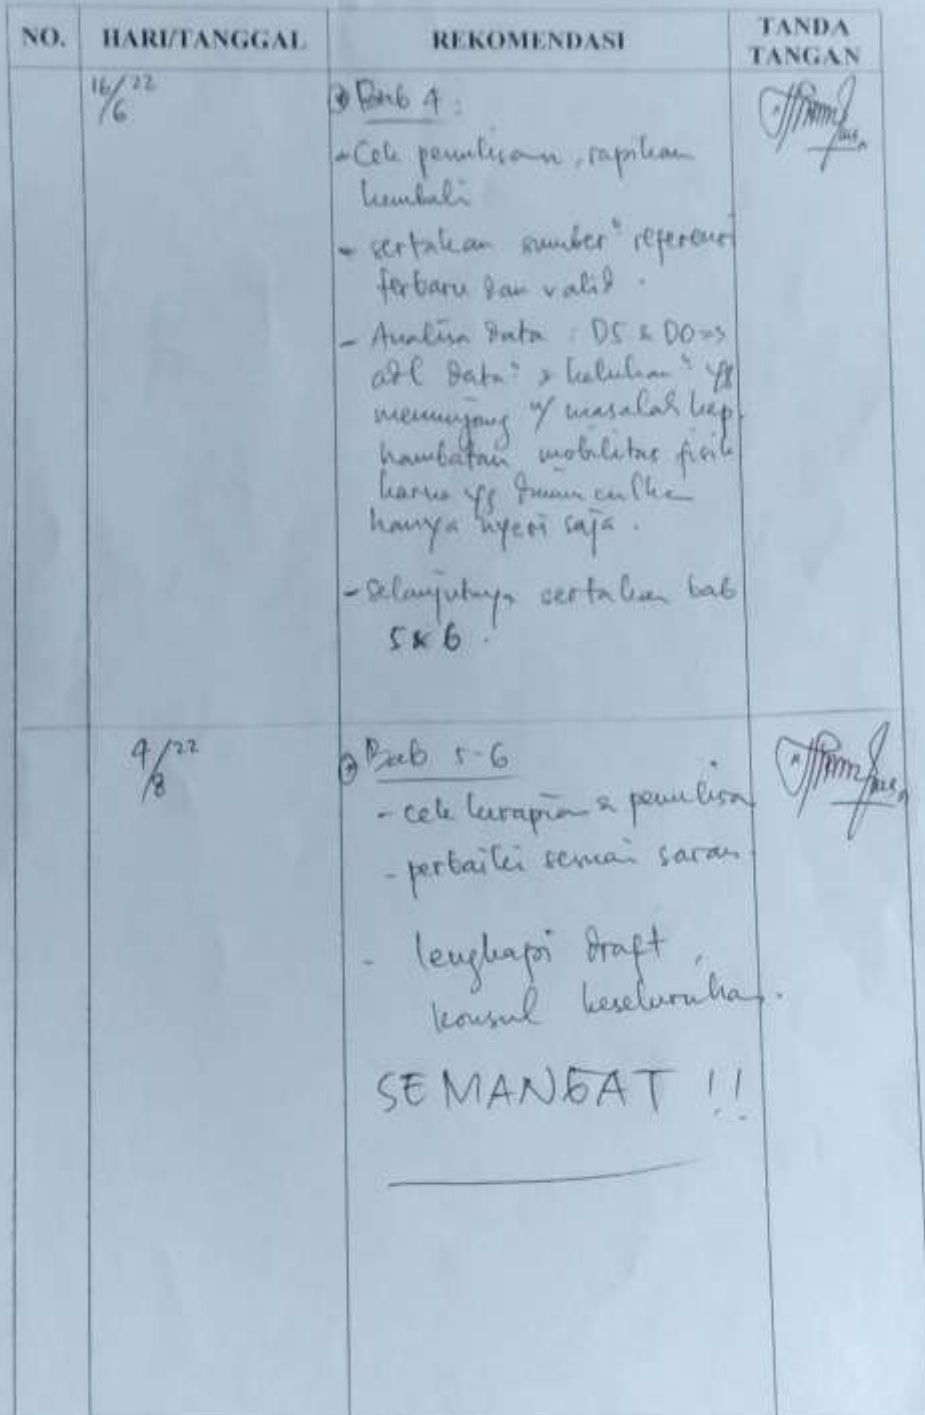 NO. HARI/TANGGAL REKOMENDASI TANDA TANGAN
16/6 22
Bab 4 :
- Cek penulisan, rapikan
kembali
- sertakan sumber" referensi
terbaru dan valid.
- Analisa data : DS & DO =>
adl data" & keluhan" yg
menunjang u/ masalah kep
hambatan mobilitas fisik
karna yg dimunculkan
hanya nyeri saja.
- selanjutnya sertakan bab
5 & 6.
4/8 22
Bab 5-6
- cek kerapian & penulisan
- perbaiki sesuai saran
- lengkapi draft,
konsul keseluruhan.
SEMANGAT !!